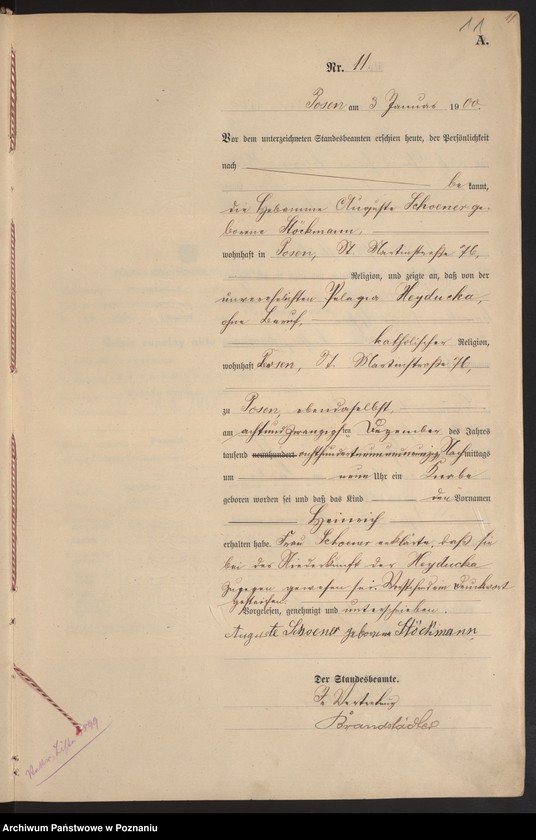 11
11
A.
Nr. 11
Posen am 3 Januar 1900.
Vor dem unterzeichneten Standesbeamten erschien heute, der Persönlichkeit
nach
be kannt,
die Hebamme Auguste Schoener ge-
borene Stöckmann,
wohnhaft in Posen, St. Martinstraße 76,
Religion, und zeigte an, daß von der
unverehelichten Pelagia Heyducka,
ohne Beruf,
katholischer Religion,
wohnhaft Posen, St. Martinstraße 76,
zu Posen, ebendaselbst,
am achtundzwanzigsten Dezember des Jahres
tausend neunhundert achthundertneunundneunzig Nachmittags
um neun Uhr ein Knabe
geboren worden sei und daß das Kind den Vornamen
Heinrich
erhalten habe. Frau Schoener erklärte, daß sie
bei der Niederkunft der Heyducka
zugegen gewesen sei. Vorstehendem Druckwort
gestrichen.
Vorgelesen, genehmigt und unterschrieben.
Auguste Schoener geborene Stöckmann
Der Standesbeamte.
In Vertretung
Brandstädter
1899
Archiwum Państwowe w Poznaniu